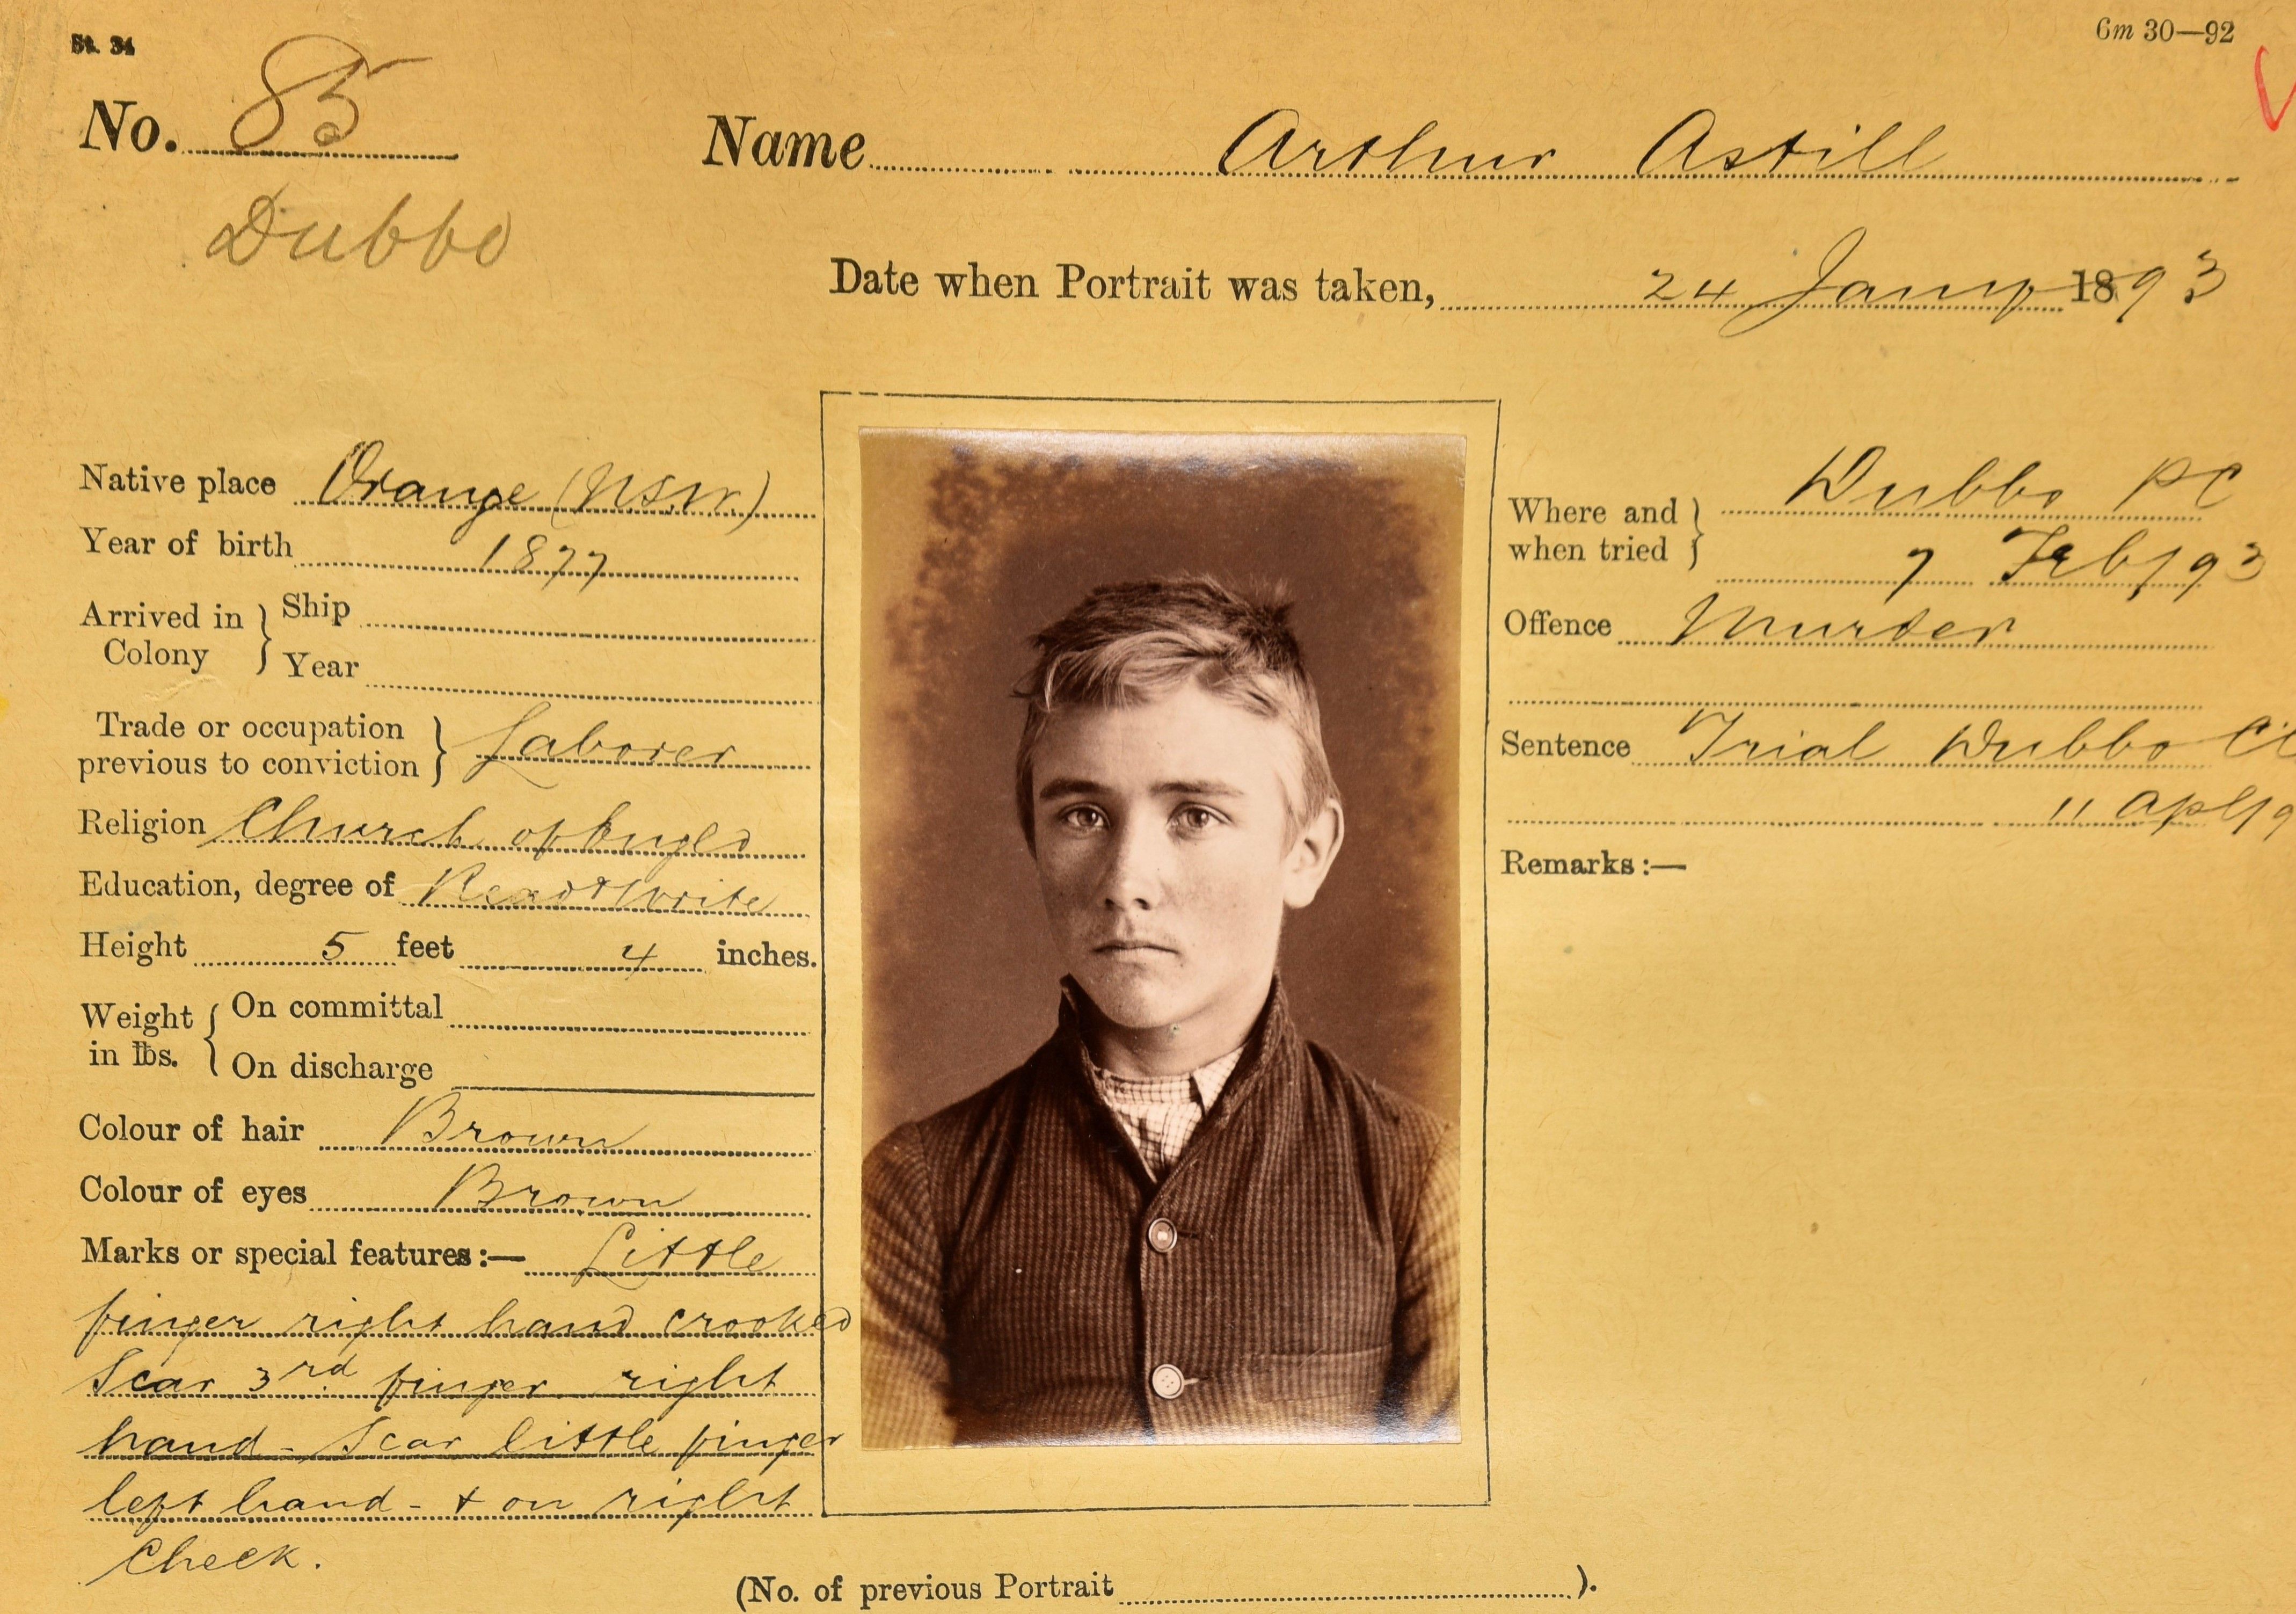 St. 34
6m 30—92
No. 85
Name Arthur Astill
Dubbo
Date when Portrait was taken, 24 Jany 1893
Native place Orange (N.S.W.)
Year of birth 1877
Arrived in Colony } Ship
Year
Trade or occupation previous to conviction } Laborer
Religion Church of Engld
Education, degree of Read & Write
Height 5 feet 4 inches.
Weight in lbs. { On committal
On discharge
Colour of hair Brown
Colour of eyes Brown
Marks or special features:— Little
finger right hand crooked
Scar 3rd finger right
hand - Scar little finger
left hand - & on right
Cheek.
Where and when tried } Dubbo PC
7 Feb/93
Offence Murder
Sentence Trial Dubbo
11 Apl/9
Remarks:—
(No. of previous Portrait ).